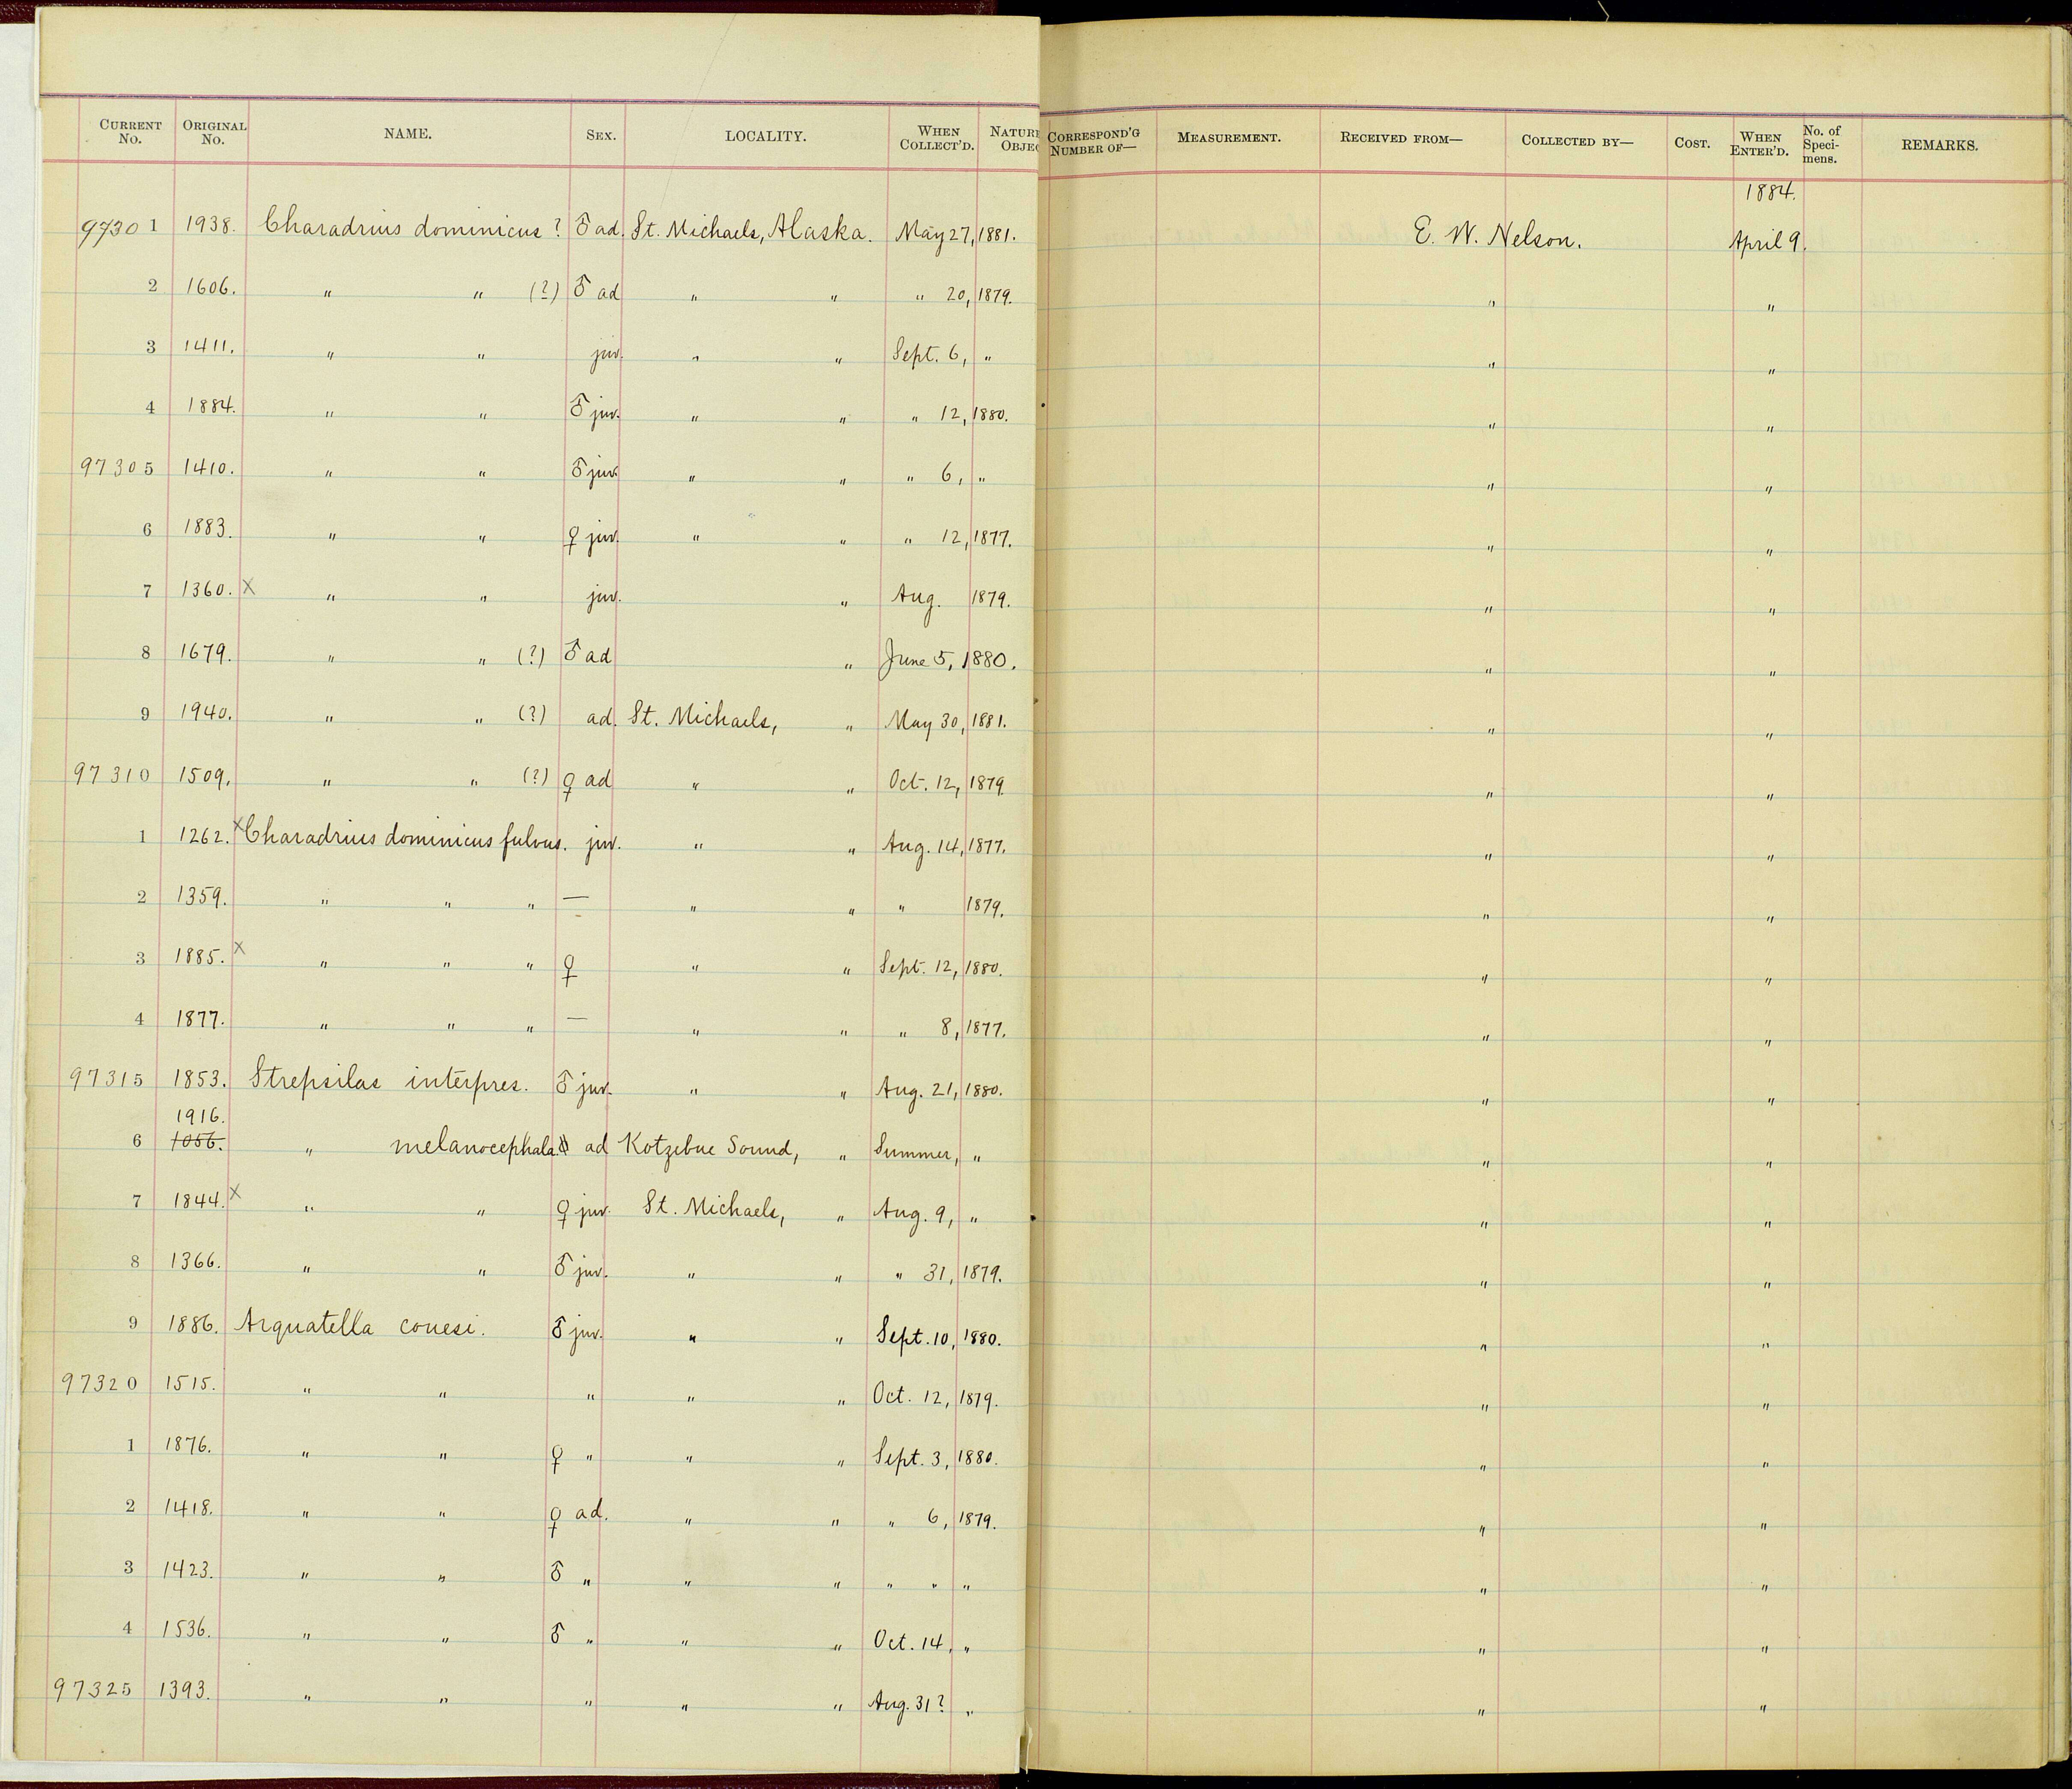 CURRENT No. ORIGINAL No. NAME. SEX. LOCALITY. WHEN COLLECT'D. NATURE OBJEC CORRESPOND'G NUMBER OF— MEASUREMENT. RECEIVED FROM— COLLECTED BY— COST. WHEN ENTER'D. No. of Speci-mens. REMARKS.
1884.
97301 1938. Charadrius dominicus ? ♂ ad. St. Michaels, Alaska. May 27, 1881. E. W. Nelson. April 9.
2 1606. " " (?) ♂ ad " " " 20, 1879. " "
3 1411. " " juv. " " Sept. 6, " " "
4 1884. " " ♂ juv. " " " 12, 1880. " "
97305 1410. " " ♂ juv. " " " 6, " " "
6 1883. " " ♀ juv. " " " 12, 1877. " "
7 1360. x " " juv. " Aug. 1879. " "
8 1679. " " (?) ♂ ad " June 5, 1880. " "
9 1940. " " (?) ad. St. Michaels, " May 30, 1881. " "
97310 1509. " " (?) ♀ ad " " Oct. 12, 1879. " "
1 1262. x Charadrius dominicus fulvus. juv. " " Aug. 14, 1877. " "
2 1359. " " " — " " " 1879. " "
3 1885. x " " " ♀ " " Sept. 12, 1880. " "
4 1877. " " " — " " " 8, 1877. " "
97315 1853. Strepsilas interpres. ♂ juv. " " Aug. 21, 1880. " "
1916.
6 1056. " melanocephala. ad Kotzebue Sound, " Summer, " " "
7 1844. x " " ♀ juv. St. Michaels, " Aug. 9, " " "
8 1366. " " ♂ juv. " " " 31, 1879. " "
9 1886. Arquatella couesi. ♂ juv. " " Sept. 10, 1880. " "
97320 1515. " " " " " Oct. 12, 1879. " "
1 1876. " " ♀ " " " Sept. 3, 1880. " "
2 1418. " " ♀ ad. " " " 6, 1879. " "
3 1423. " " ♂ " " " " " " " "
4 1536. " " ♂ " " " Oct. 14, " " "
97325 1393. " " " " " Aug. 31? " " "